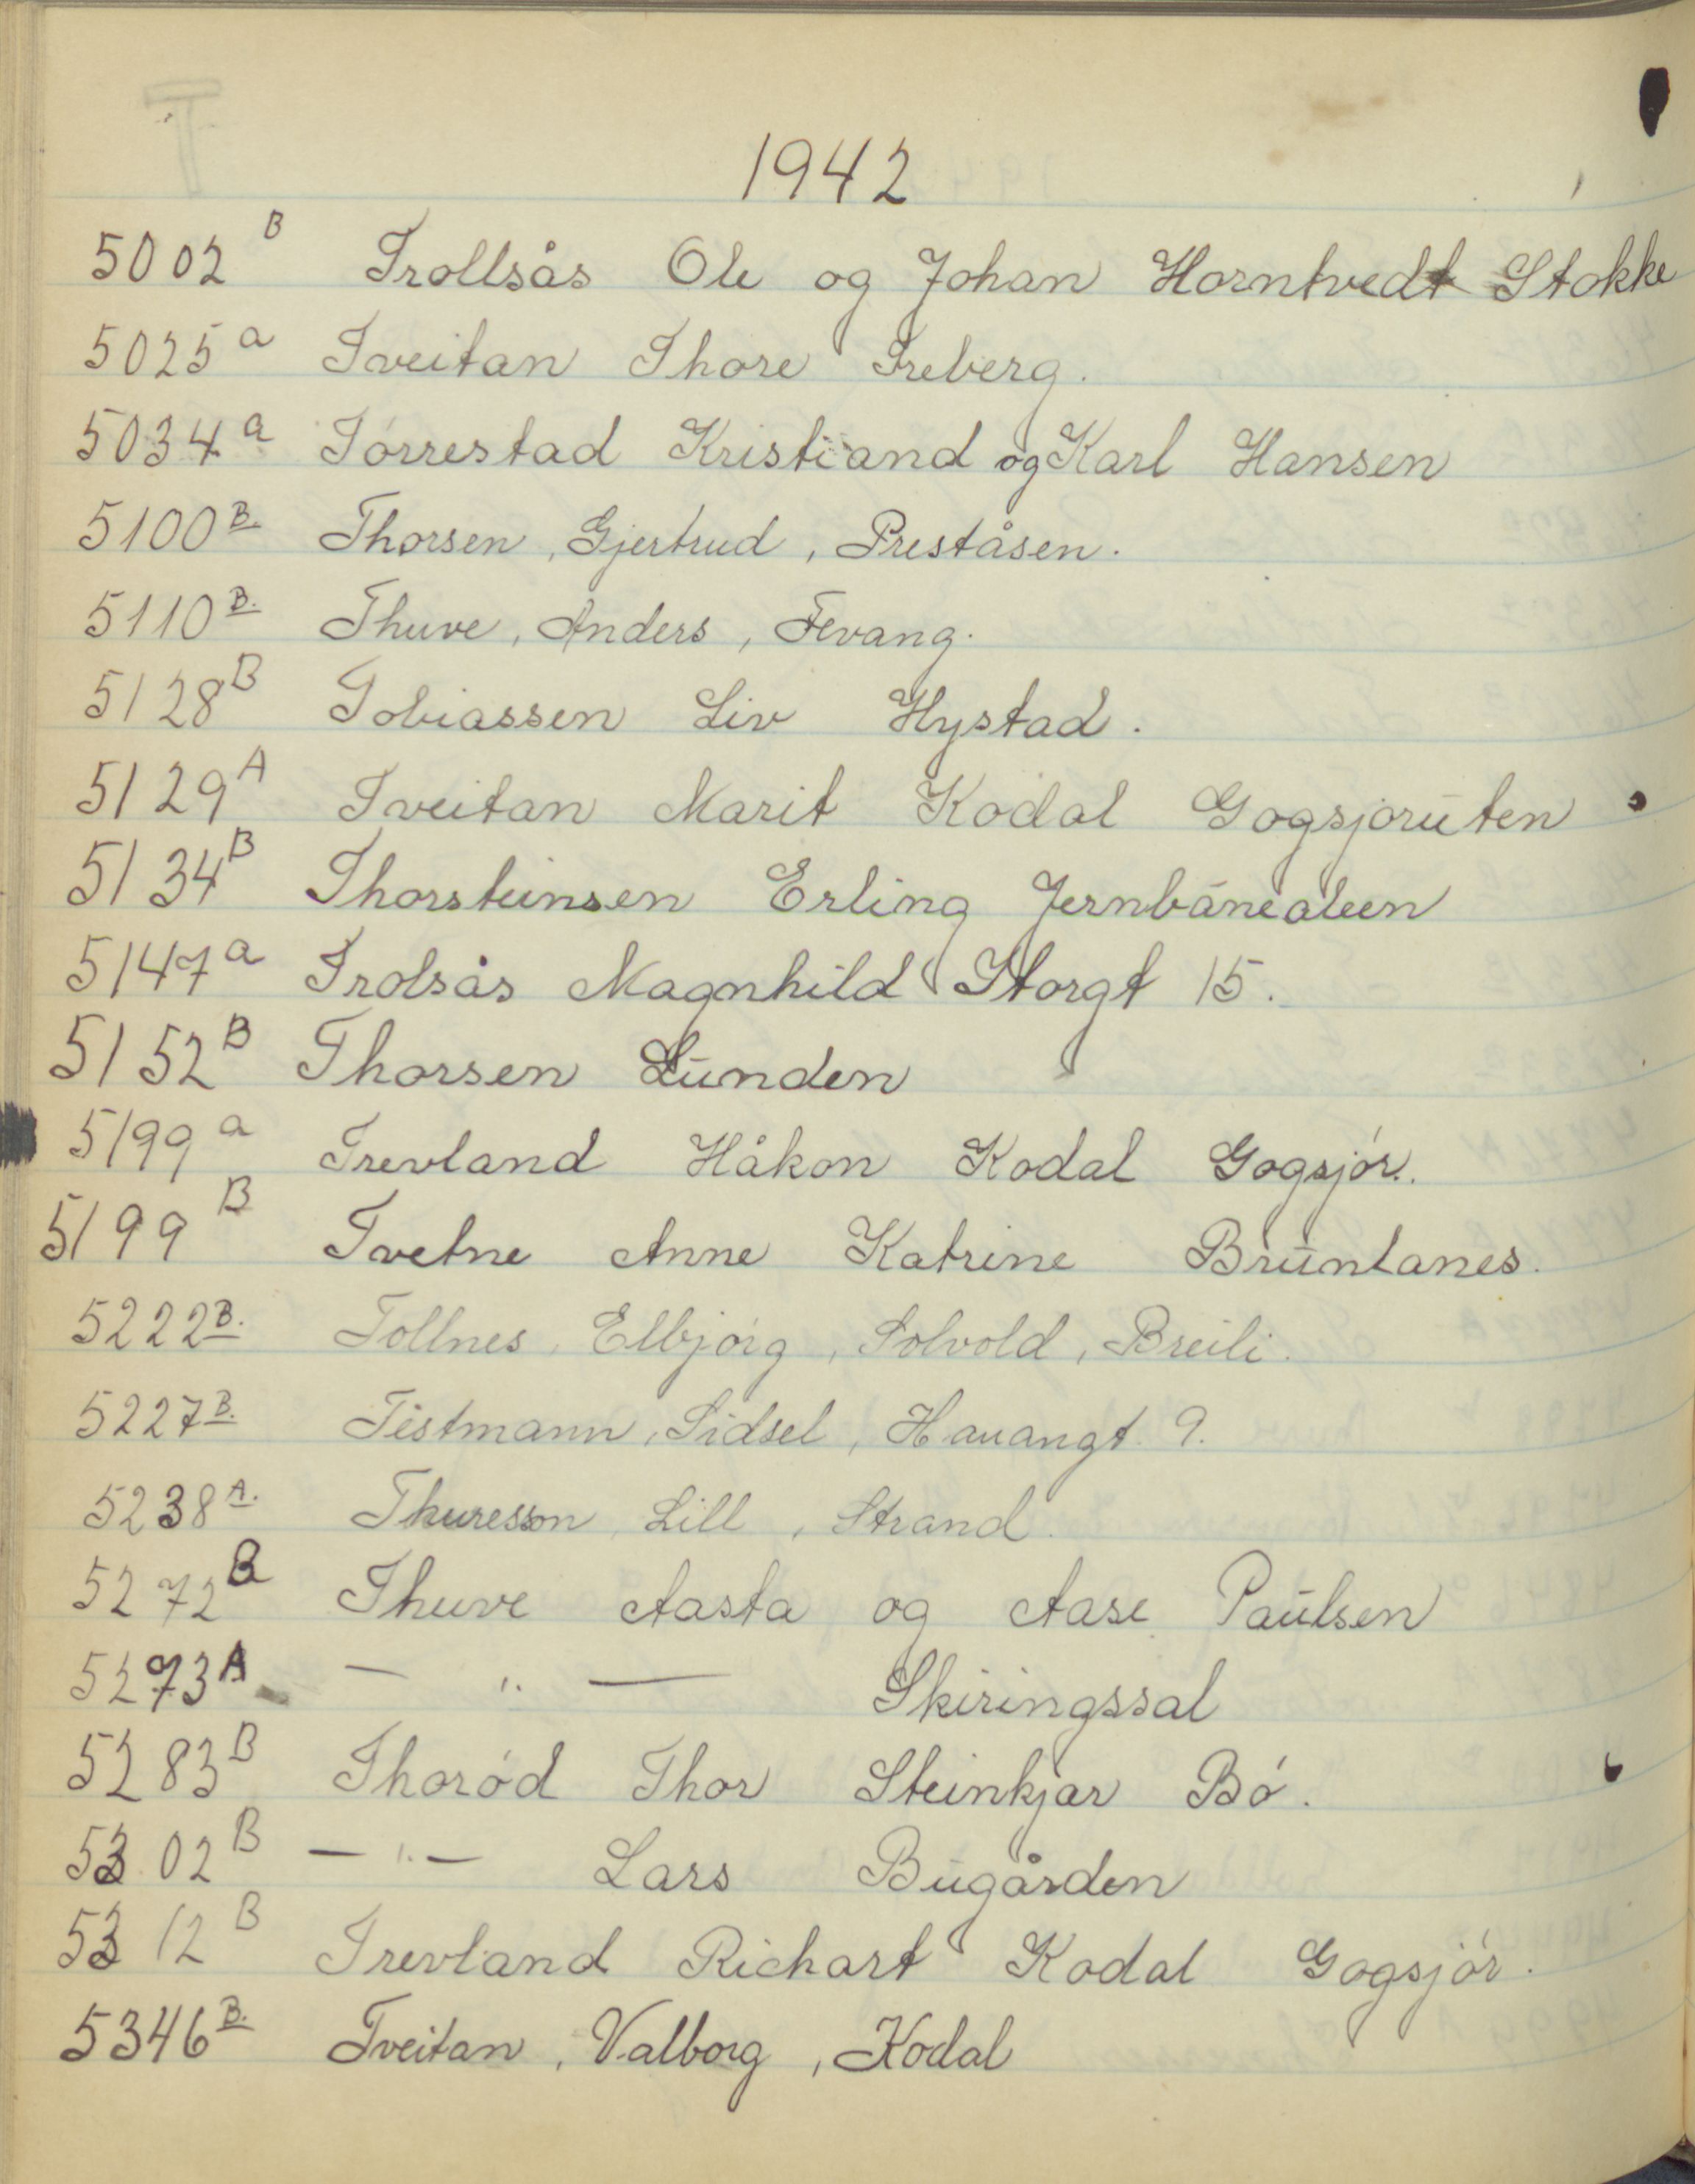 1942
5002 B Trollsås Ole og Johan Horntvedt Stokke
5025 a Tveitan Thore Freberg.
5034 a Tórrestad Kristiand og Karl Hansen
5100 B. Thorsen, Gjertrud, Preståsen.
5110 B. Thuve, Anders, Fevang.
5128 B Tobiassen Liv Hystad.
5129 A Tveitan Marit Kodal Gogsjoruten
5134 B Thorsteinsen Erling Jernbanealeen
5147 a Trolsås Magnhild Storgt 15.
5152 B Thorsen Lunden
5199 a Trevland Håkon Kodal Gogsjór.
5199 B Tvetne Anne Katrine Brunlanes.
5222 B. Tollnes, Elbjórg, Solvold, Breili.
5227 B. Tistmann, Sidsel, Hauangt. 9.
5238 A. Thuresson, Lill, Strand.
5272 B Thuve Aasta og Aase Paulsen
5273 A — " — Skiringssal
5283 B Thoród Thor Steinkjar Bó.
5302 B — " — Lars Bugården
5312 B Trevland Richart Kodal Gogsjór.
5346 B. Tveitan, Valborg, Kodal